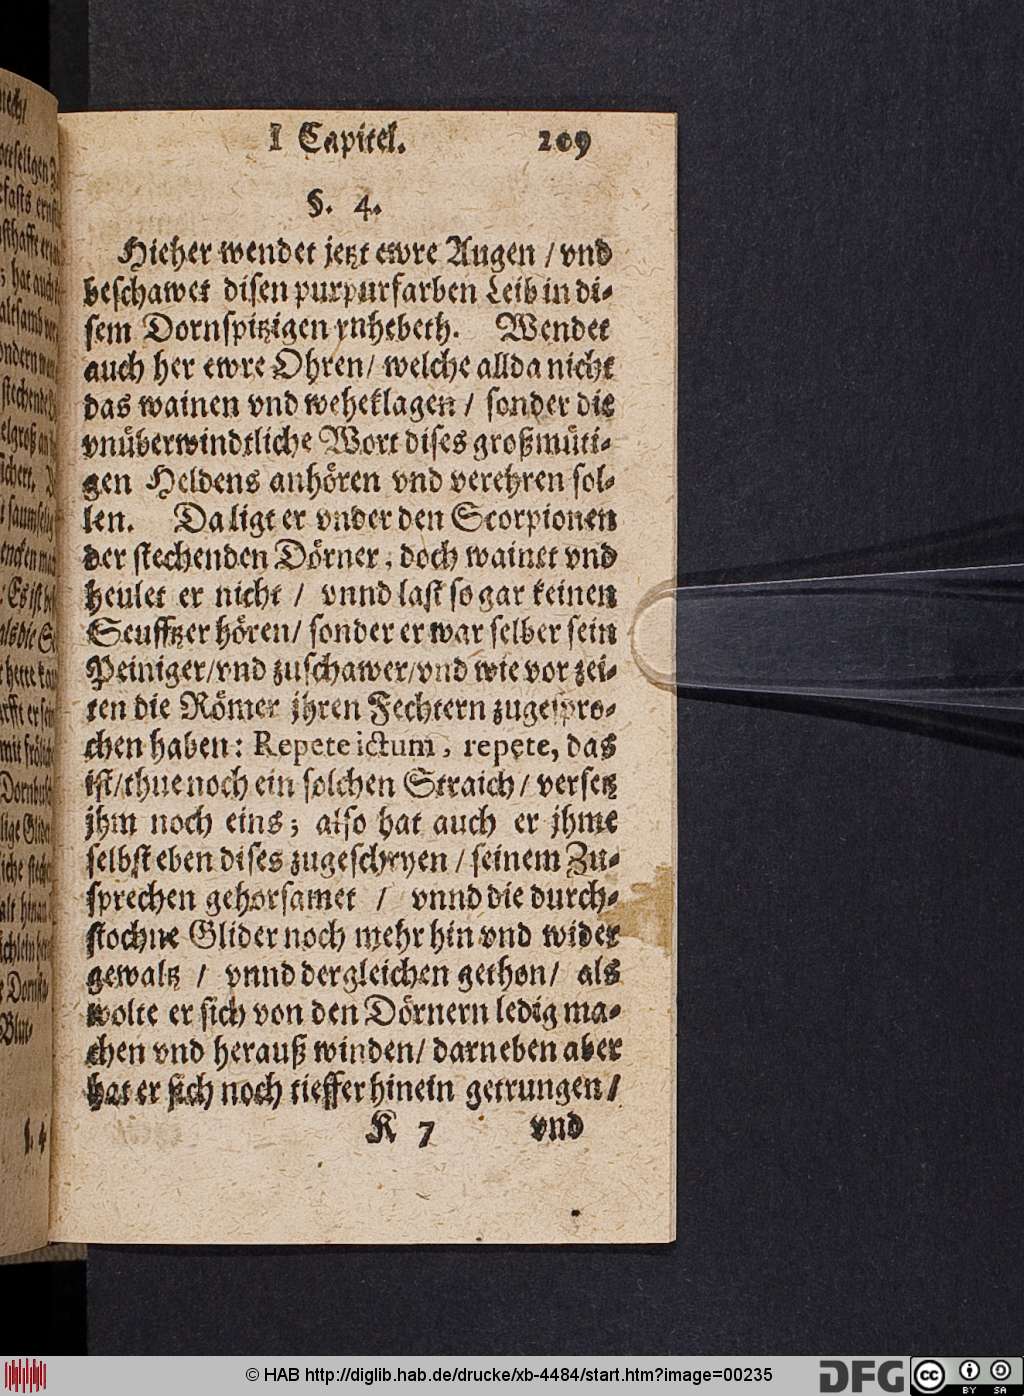 I Capitel. 209
§. 4.
Hieher wendet jetzt ewre Augen / vnd
beschawet disen purpurfarben Leib in di-
sem Dornspitzigen rnhebeth. Wendet
auch her ewre Ohren / welche allda nicht
das wainen vnd weheklagen / sonder die
vnüberwindtliche Wort dises großmüti-
gen Heldens anhören vnd verehren sol-
len. Da ligt er vnder den Scorpionen
der stechenden Dörner, doch wainet vnd
heulet er nicht / vnnd last so gar keinen
Seufftzer hören / sonder er war selber sein
Peiniger / vnd zuschawer / vnd wie vor zei-
ten die Römer jhren Fechtern zugespro-
chen haben: Repete ictum, repete, das
ist / thue noch ein solchen Straich / versetz
jhm noch eins; also hat auch er jhme
selbst eben dises zugeschryen / seinem Zu-
sprechen gehorsamet / vnnd die durch-
stochne Glider noch mehr hin vnd wider
gewaltz / vnnd dergleichen gethon / als
wolte er sich von den Dörnern ledig ma-
chen vnd herauß winden / darneben aber
hat er sich noch tieffer hinein getrungen /
K 7 vnd
© HAB http://diglib.hab.de/drucke/xb-4484/start.htm?image=00235
DFG
cc BY SA